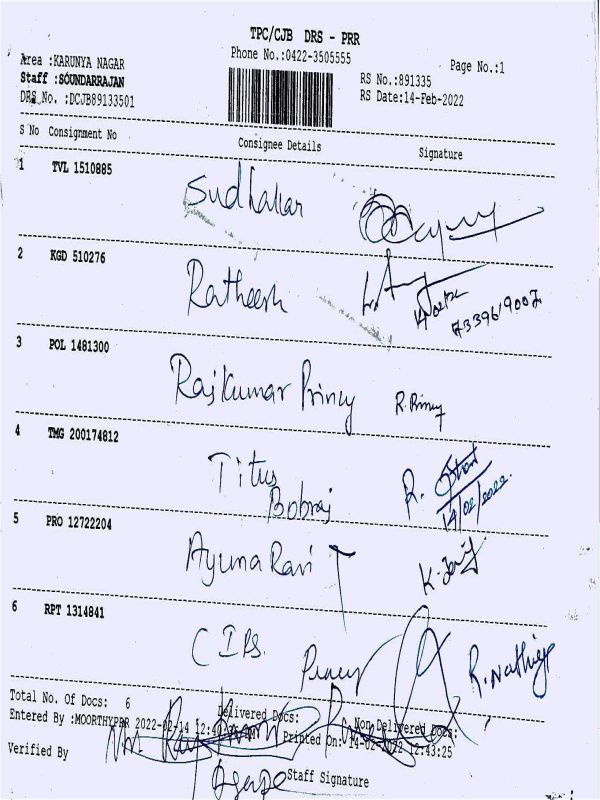 TPC/CJB DRS - PRR
Phone No.:0422-3505555
Page No.:1
Area :KARUNYA NAGAR
Staff :SOUNDARRAJAN
DRS No. :DCJB89133501
RS No.:891335
RS Date:14-Feb-2022
S No Consignment No Consignee Details Signature
1 TVL 1510885
Sudhakar
2 KGD 510276
Ratheesh
3 POL 1481300
Rajkumar Princy
R. Princy
4 TMG 200174812
Titus
Bobraj
R.
14/02/2022.
5 PRO 12722204
Ayuna Ravi
6 RPT 1314841
C IPS.
Total No. Of Docs: 6 Delivered Docs: Non Delivered Docs:
Entered By :MOORTHYPRR 2022-02-14 Printed On: 14-02-2022 12:43:25
Verified By
Staff Signature